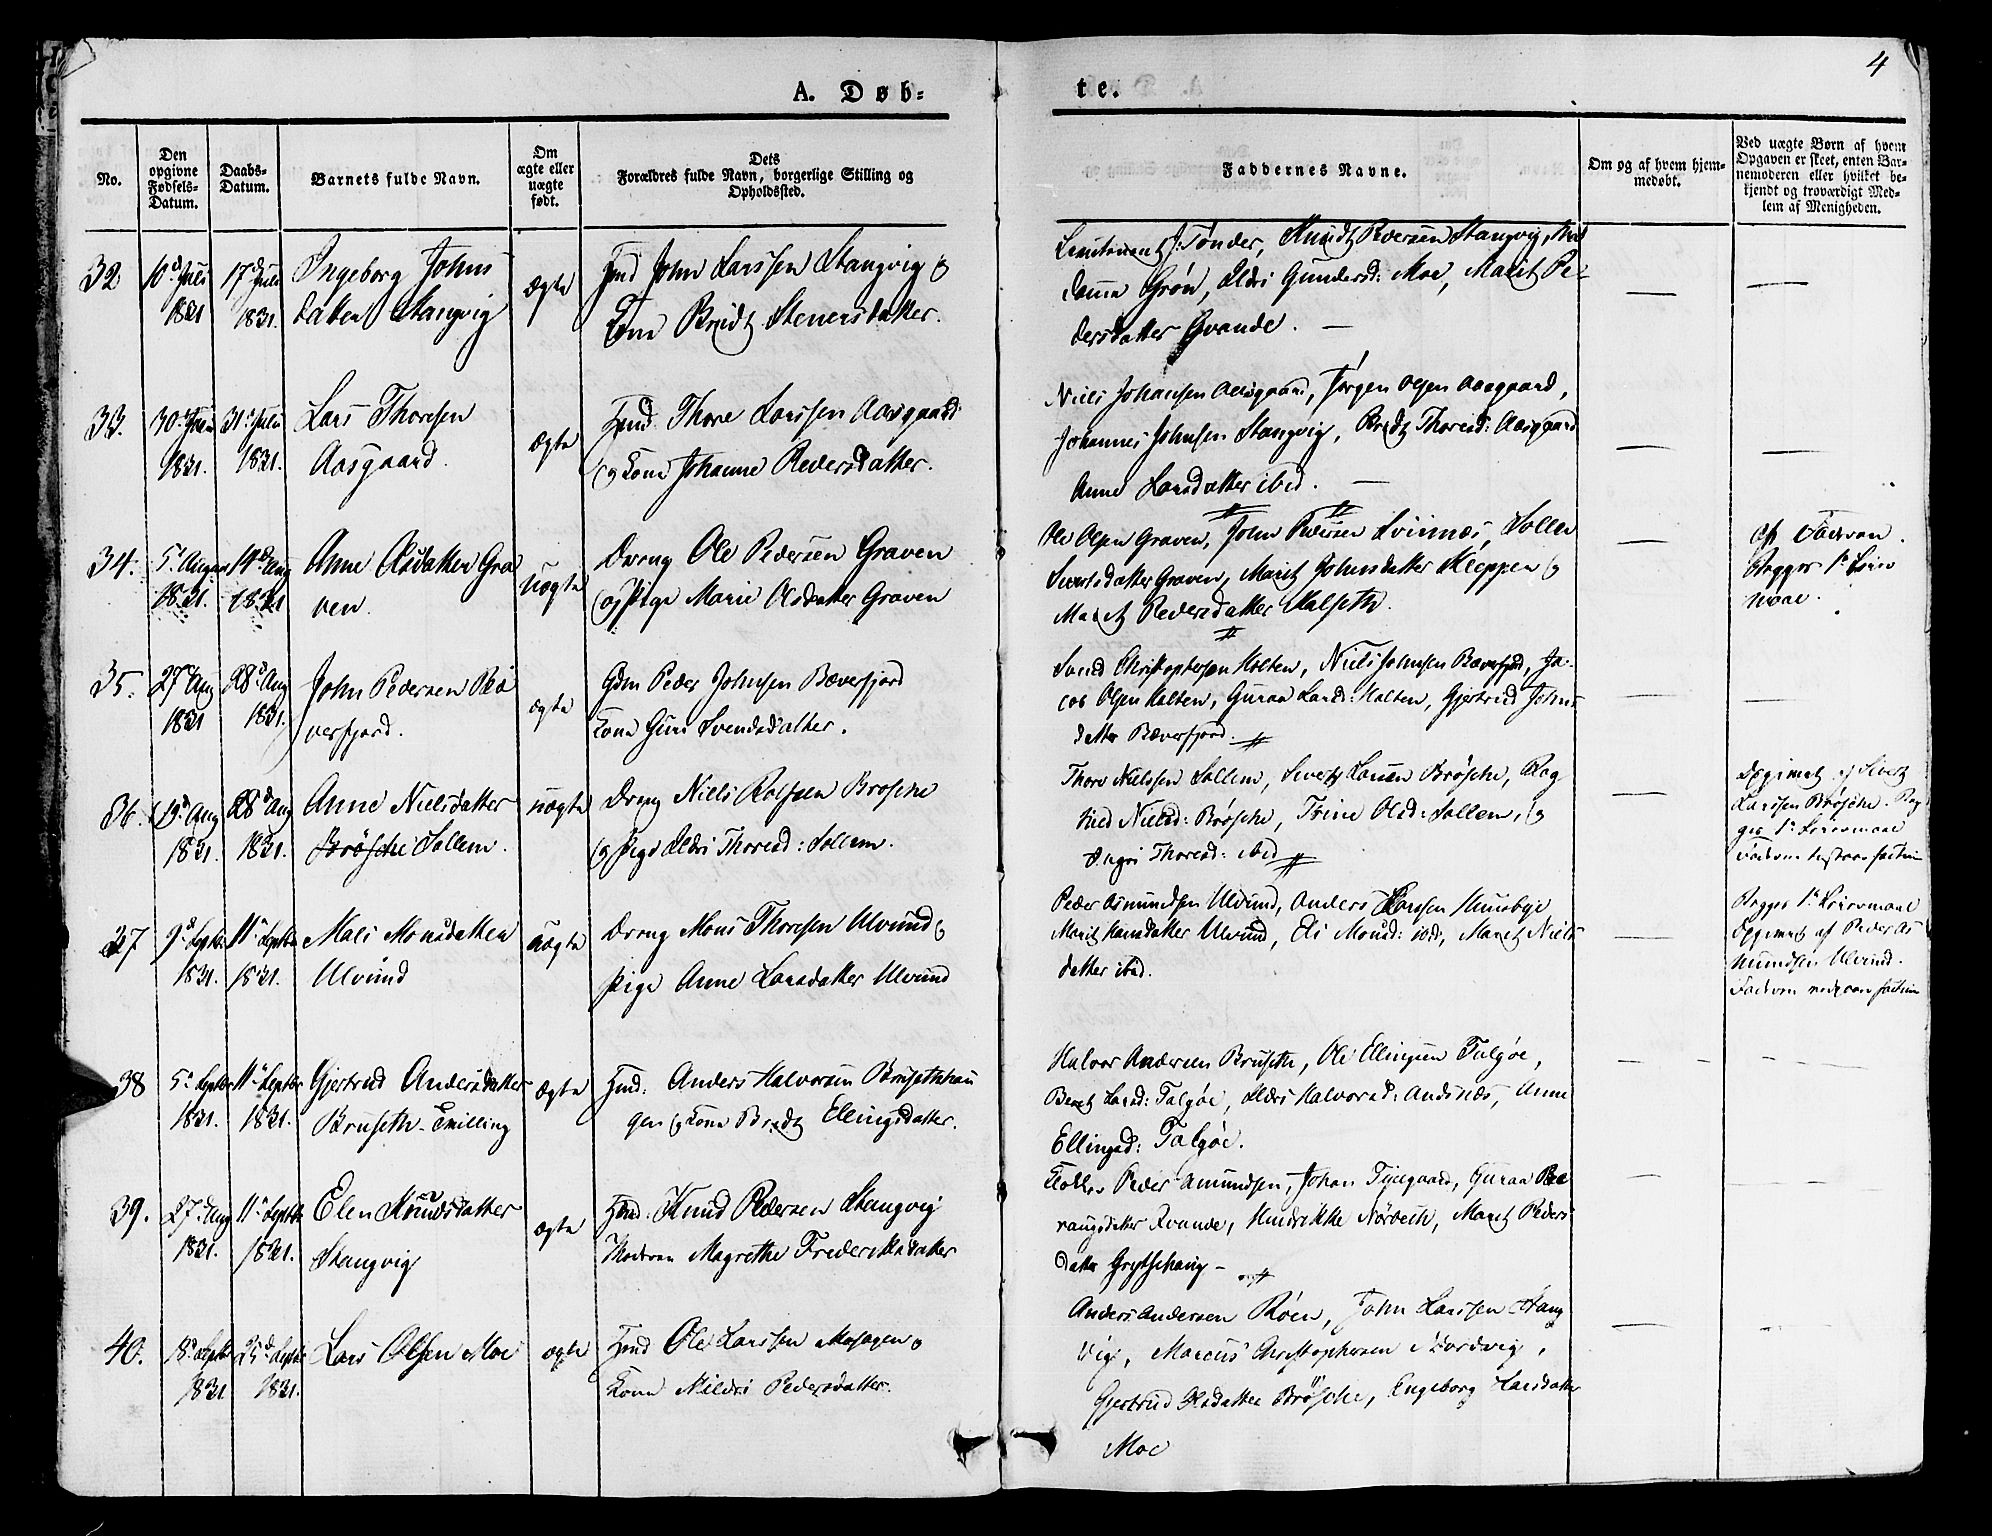 4
A. Døb=
te.
No.
Den
opgivne
Fødsels-
Datum.
Daabs-
Datum.
Barnets fulde Navn.
Om
ægte eller
uægte
født.
Dets
Forældres fulde Navn, borgerlige Stilling og
Opholdssted.
Faddernes Navne.
Om og af hvem hjem-
medøbt.
Ved uægte Børn af hvem
Opgaven er skeet, enten Bar-
nemoderen eller hvilket be-
kjendt og troværdigt Med-
lem af Menigheden.
32
10d Juli
1831
17d Juli
1831.
Ingeborg Johns
datter Stangvig
ægte
John Larssen Stangvig og
Kone Bridt Stenersdatter.
Leutnant J: Tønder, Knudt Stangvig,
Grön, Ildri Gundersd: Moe, Marit Pe-
dersdatter Qvande. —
—
—
33.
30. Juli
1831.
31. Juli
1831.
Lars Thoresen
Aasgaard.
ægte
Thore Larssen Aasgaard
og Kone Johanne Pedersdatter.
Niels Johansen Aasgaard, Jørgen Olsen Aasgaard,
Johannes Johnsen Stangvig, Bridt Thoresd: Aasgaard
Anne Larsdatter ibid. —
—
—
34.
5. Aug
1831.
14d Aug
1831
Anne Olsdatter Gra
ven.
uægte
Dreng Ole Pedersen Graven
og Pige Marie Olsdatter Graven
Ole Olsen Graven, John Pedersen Svinnæs,
Graven, Marit Johnsdatter Kleppen og
Marit Pedersdatter Halseth.
—
af Faderen.
35.
27d Aug
1831
28d Aug
1831.
John Pedersen Bæ
verfjord.
ægte
Gdm Peder Johnsen Bæverfjord
Kone Guri Svendsdatter.
Svend Christophersen Holten, Niels Johnsen Bæverfjord, Ja-
cob Olsen Holten, Guraa Larsd: Holten, Gjertrud Johns
datter Bæverfjord.
—
—
36.
19d Aug
1831.
28d Aug
1831.
Anne Nielsdatter
Brøsche Sollem.
uægte
Dreng Niels Rolfsen Brøsche
og Pige Ildri Thoresd: Sollem.
Thore Nielssen Sollem, Sivert Larsen Brøsche, Rag
hild Nielsd: Brøsche, Trine Olsd: Sollem, og
Ingri Thoresd: ibid
—
Opgivet af Sivert
Larssen Brøsche.
37
9d Septbr
1831.
11d Septbr
1831.
Mali Monsdatter
Ulvund
uægte
Dreng Mons Thoresen Ulvund og
Pige Anne Larsdatter Ulvund
Peder Asmundsen Ulvund, Anders Larssen Huusbye
Marit Hansdatter Ulvund, Eli Monsd: ibid, Marit Niels
datter ibid.
—
Opgivet af Peder As
mundsen Ulvund.
38
5. Septbr
1831.
11d Septbr
1831.
Gjertrud Andersdatter
Bruseth. Tvilling
ægte
Anders Halvorsen Brusethhau
gen og Kone Bridt Ellingsdatter.
Halvor Andersen Bruseth, Ole Ellingsen Talgöe,
Beret Larsd: Talgöe, Ildri Halvorsd: Andsnæs, Anne
Ellingsd: Talgöe.
—
—
39.
27. Aug
1831.
11d Septbr
1831.
Elen Knudsdatter
Stangvig
ægte
Knud Pedersen Stangvig
Moderen Magrethe Frederiksdatter
Peder Amundsen, Johan Guraa Bæ
rangsdatter Qvande, Hendrikke Nørbech, Marit Peders
datter Grytschoug —
—
—
40.
18d Septbr
1831
25d Septbr
1831.
Lars Olsen Moe
ægte
Ole Larssen og
Kone Ildri Pedersdatter.
Anders Andersen Röen, John Larssen Stang
vig, Marcus Christophersen Bordvig,
Gjertrud Olsdatter Brøsche, Engeborg Larsdatter
Moe
—